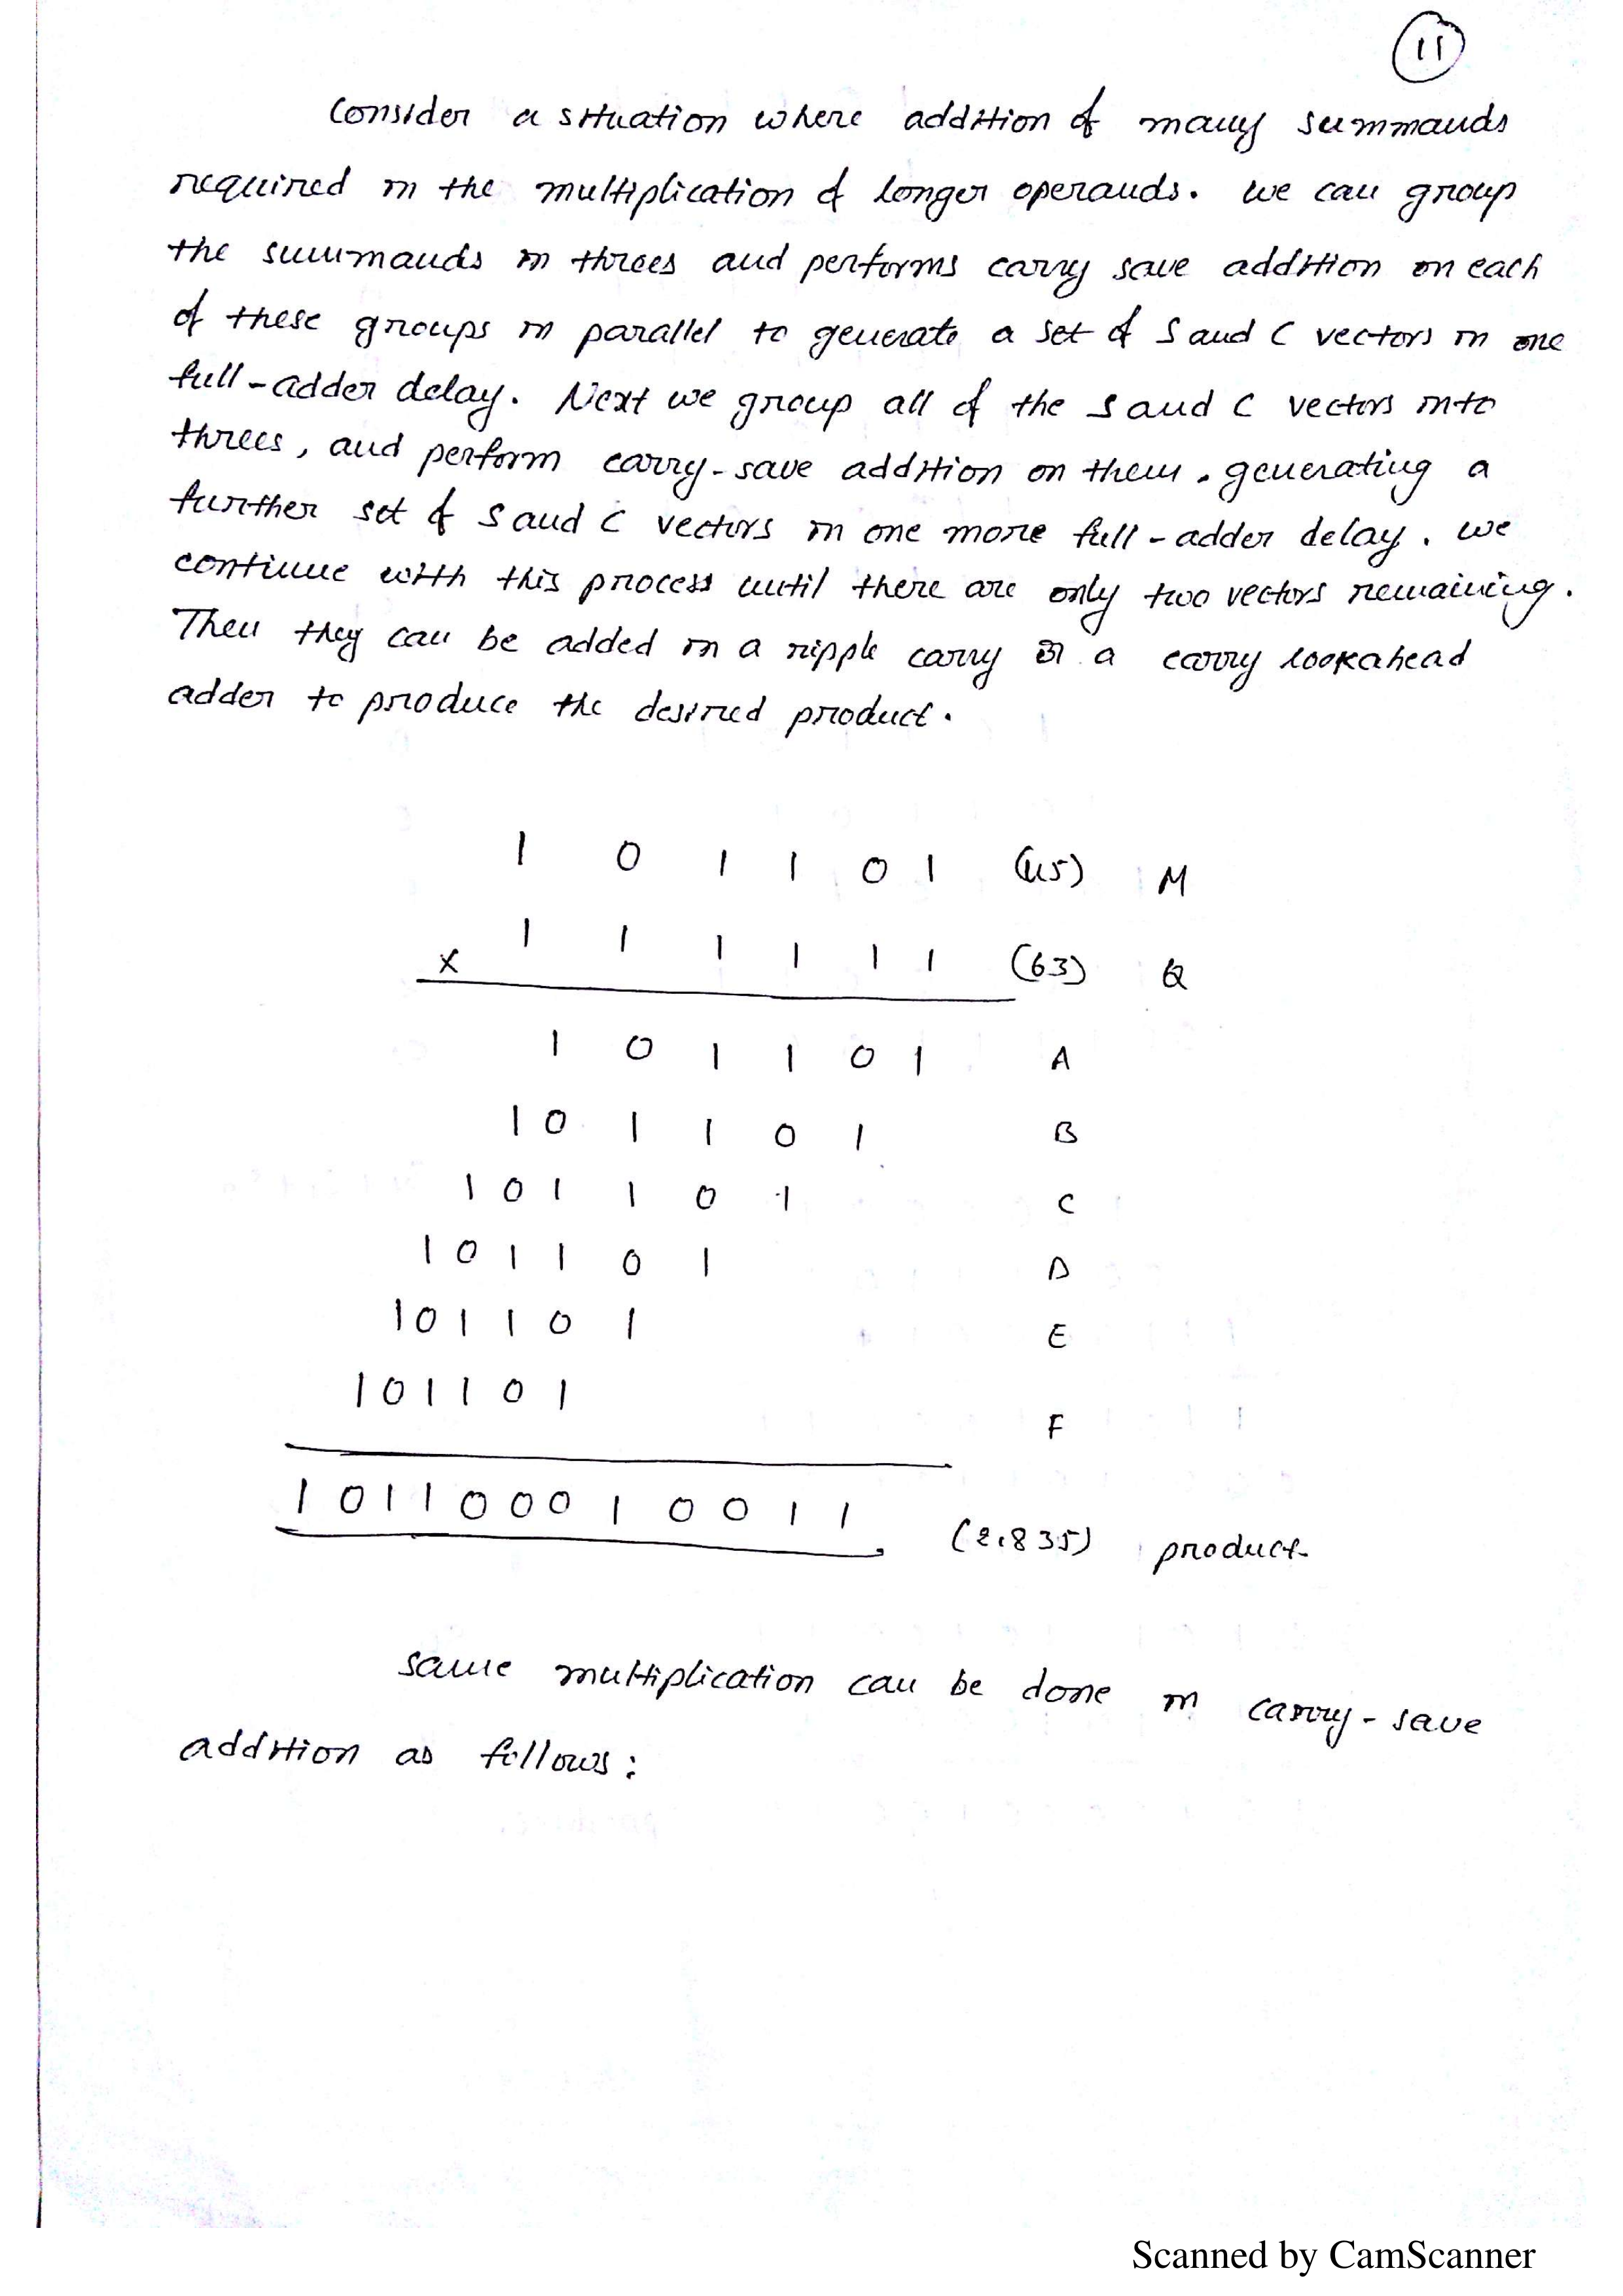 11
Consider a situation where addition of many summands
required in the multiplication of longer operands. We can group
the summands in threes and performs carry save addition on each
of these groups in parallel to generate a set of S and C vectors in one
full-adder delay. Next we group all of the S and C vectors into
threes, and perform carry-save addition on them, generating a
further set of S and C vectors in one more full-adder delay. We
continue with this process until there are only two vectors remaining.
Then they can be added in a ripple carry or a carry lookahead
adder to produce the desired product.
1 0 1 1 0 1 (45) M
x 1 1 1 1 1 1 (63) Q
1 0 1 1 0 1 A
1 0 1 1 0 1 B
1 0 1 1 0 1 C
1 0 1 1 0 1 D
1 0 1 1 0 1 E
1 0 1 1 0 1 F
1 0 1 1 0 0 0 1 0 0 1 1 (2,835) product.
Same multiplication can be done in carry-save
addition as follows:
Scanned by CamScanner